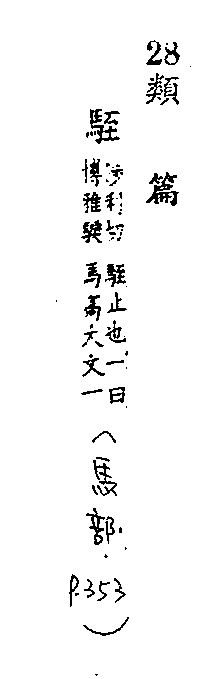 28類 篇
駤
涉利切
博雅
駤止也一曰
馬高大文一
(馬部.
P.353)